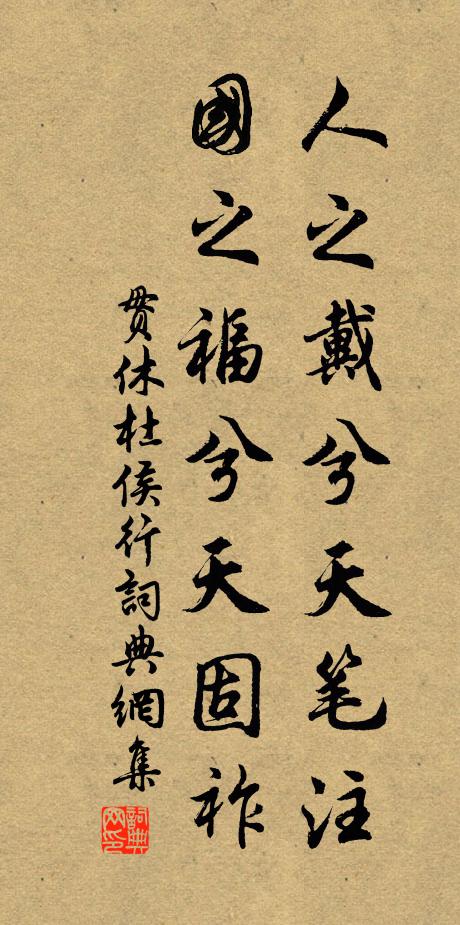 人之戴兮天笔注
國之福兮天固祚
贯休杜侯行詞典網集
詞典网印